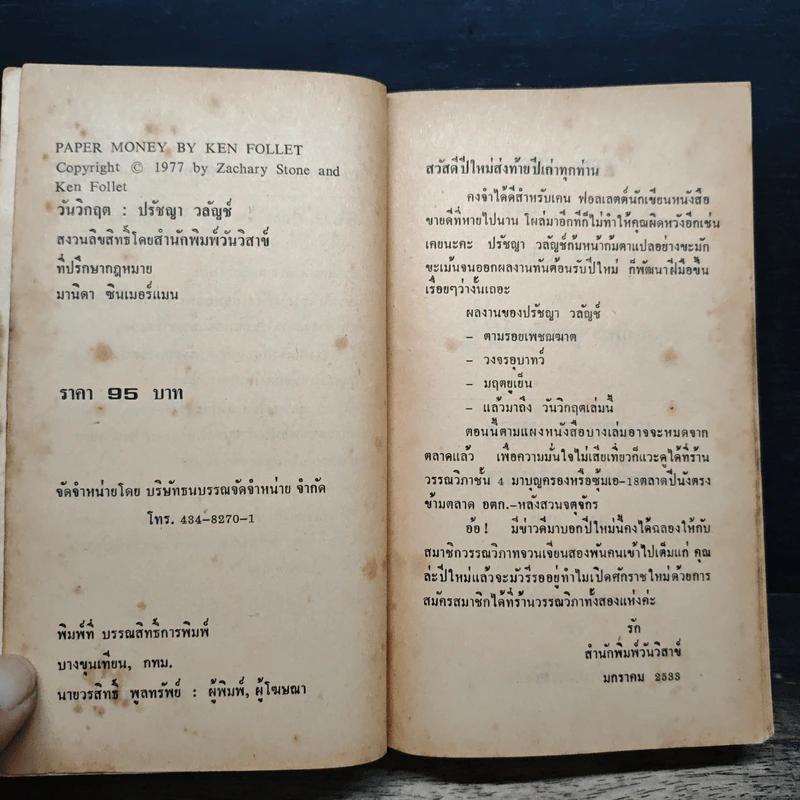 PAPER MONEY BY KEN FOLLET
Copyright © 1977 by Zachary Stone and
Ken Follet
วันวิกฤต : ปรัชญา วลัญช์
สงวนลิขสิทธิ์โดยสำนักพิมพ์วันวิสาข์
ที่ปรึกษากฎหมาย
มานิดา ซินเมอร์แมน
ราคา 95 บาท
จัดจำหน่ายโดย บริษัทธนบรรณจัดจำหน่าย จำกัด
โทร. 434-8270-1
พิมพ์ที่ บรรณสิทธิ์การพิมพ์
บางขุนเทียน, กทม.
นายวรสิทธิ์ พูลทรัพย์ : ผู้พิมพ์, ผู้โฆษณา
สวัสดีปีใหม่ส่งท้ายปีเก่าทุกท่าน
คงจำได้ดีสำหรับเคน ฟอลเลตต์นักเขียนหนังสือ
ขายดีที่หายไปนาน โผล่มาอีกทีก็ไม่ทำให้คุณผิดหวังอีกเช่น
เคยนะคะ ปรัชญา วลัญช์ก้มหน้าก้มตาแปลอย่างขะมัก
ขะเม้นจนออกผลงานทันต้อนรับปีใหม่ ก็พัฒนาฝีมือขึ้น
เรื่อยๆว่างั้นเถอะ
ผลงานของปรัชญา วลัญช์
– ตามรอยเพชฌฆาต
– วงจรอุบาทว์
– มฤตยูเย็น
– แล้วมาถึง วันวิกฤตเล่มนี้
ตอนนี้ตามแผงหนังสือบางเล่มอาจจะหมดจาก
ตลาดแล้ว เพื่อความมั่นใจไม่เสียเที่ยวก็แวะดูได้ที่ร้าน
วรรณวิภาชั้น 4 มาบุญครองหรือซุ้มเอ-18ตลาดปีนังตรง
ข้ามตลาด อตก.-หลังสวนจตุจักร
อ้อ! มีข่าวดีมาบอกปีใหม่นี้คงได้ฉลองให้กับ
สมาชิกวรรณวิภาทจวนเจียนสองพันคนเข้าไปเต็มแก่ คุณ
ล่ะปีใหม่แล้วจะมัวรีรออยู่ทำไมเปิดศักราชใหม่ด้วยการ
สมัครสมาชิกได้ที่ร้านวรรณวิภาทั้งสองแห่งค่ะ
รัก
สำนักพิมพ์วันวิสาข์
มกราคม 2533